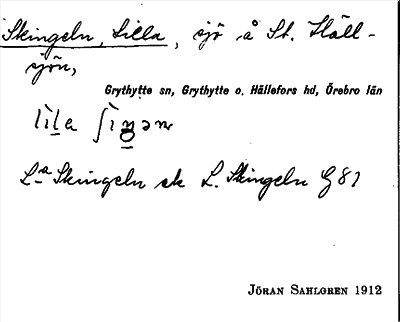 Skingeln, Lilla, sjö å St. Häll-
sjön,
Grythytte sn, Grythytte o. Hällefors hd, Örebro län
Lª Skingeln ek L. Skingeln G 81
JÖRAN SAHLGREN 1912